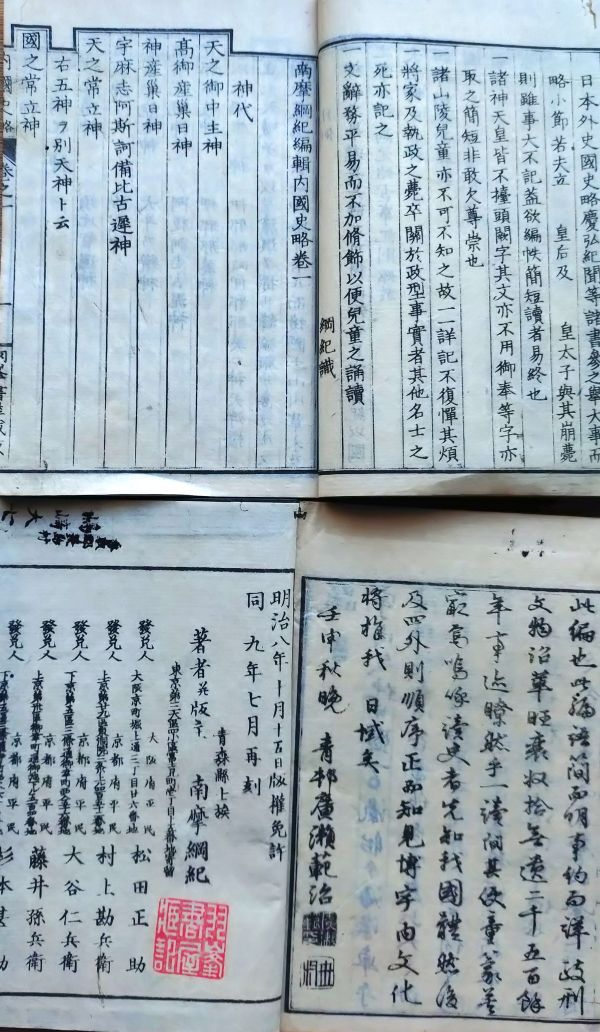 日本外史國史略慶弘紀聞等諸書參之舉大事而
略小節若夫立　皇后及　皇太子與其崩薨
則雖事大不記蓋欲編帙簡短讀者易終也
一諸神天皇皆不擡頭闕字其文亦不用御奉等字亦
取之簡短非敢欠尊崇也
一諸山陵兒童亦不可不知之故一一詳記不復憚其煩
一將家及執政之薨卒關於政型事實者其他名士之
死亦記之
一文辭務平易而不加脩飾以便兒童之誦讀
綱紀識
南摩綱紀編輯內國史略卷一
神代
天之御中主神
高御産巢日神
神産巢日神
宇麻志阿斯訶備比古遲神
天之常立神
右五神ヲ別天神ト云
國之常立神
內國史略
卷之一
此編也此編語簡而明事約而詳政刑
文物沿革旺衰収拾無遺二千五百餘
年事迹瞭然乎一讀間其便童蒙蓋
讀史者先知我國體然後
及四外則順序正而知見博宇內文化
將推我　日域矣
壬申秋晚　青邨廣瀨範治
明治八年十月十五日版權免許
同　九年七月再刻
青森縣士族
著者蔵版主　南摩綱紀
大阪府平民
發兌人　松田正助
京都府平民
發兌人　村上勘兵衛
京都府平民
發兌人　大谷仁兵衛
京都府平民
發兌人　藤井孫兵衛
京都府平民
發兌人　杉本甚助